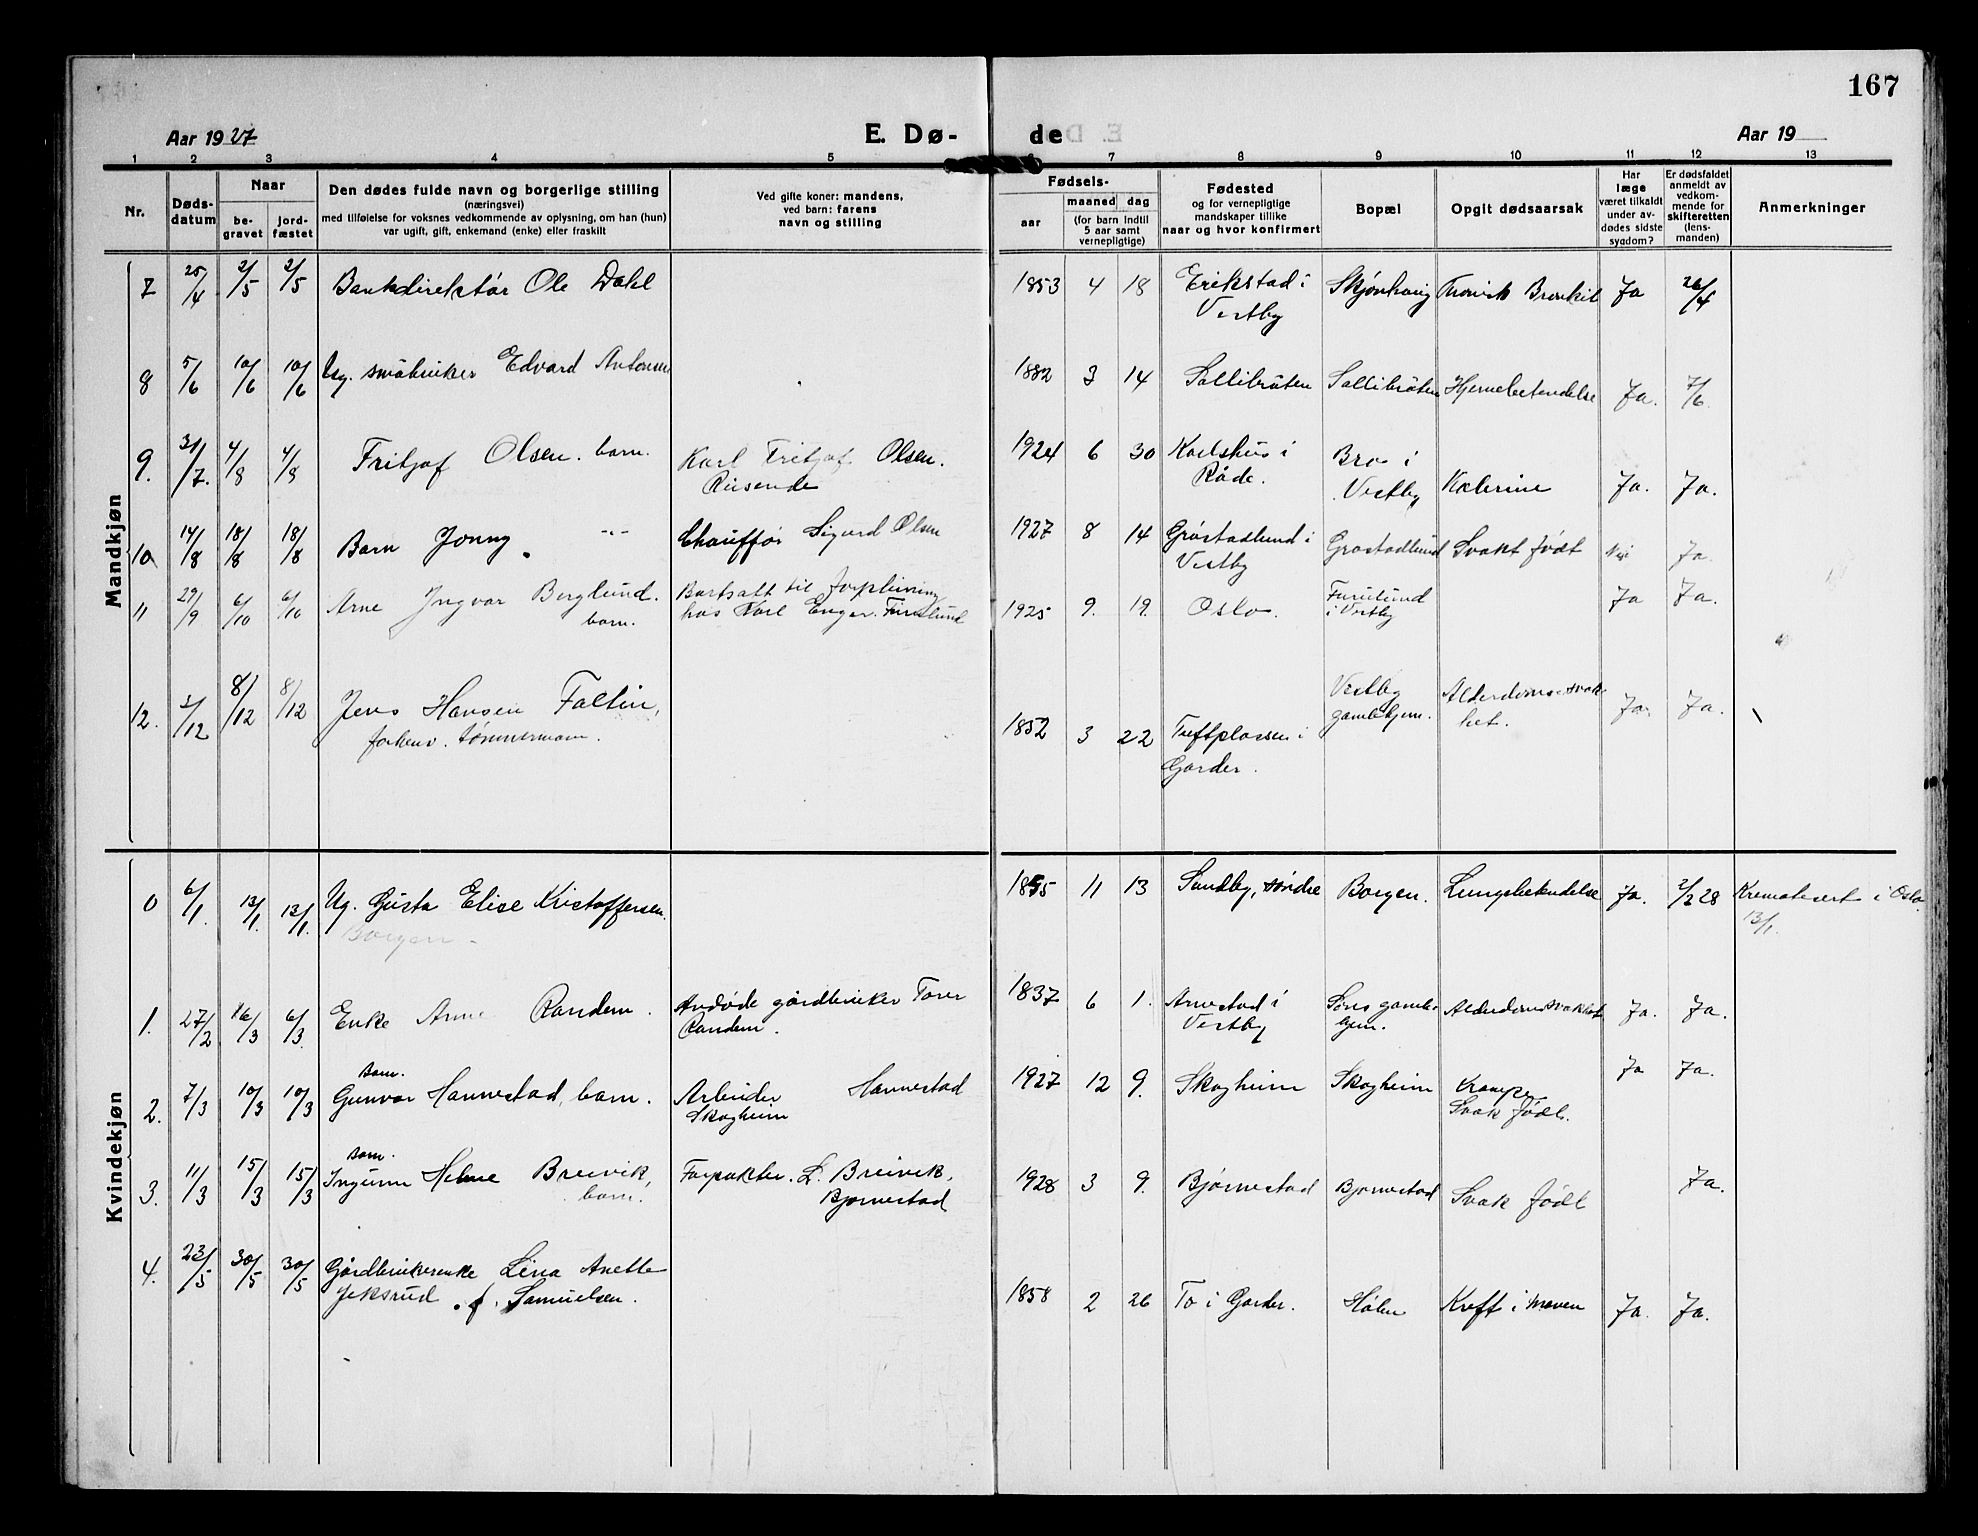 167
Aar 1927
E. Dø-
de
Aar 19
1 2 3 4 5 6 7 8 9 10 11 12 13
Nr.
Døds-
datum
Naar
be-
gravet
jord-
fæstet
Den dødes fulde navn og borgerlige stilling
(næringsvei)
med tilføielse for voksnes vedkommende av oplysning, om han (hun)
var ugift, gift, enkemand (enke) eller fraskilt
Ved gifte koner: mandens,
ved barn: farens
navn og stilling
Fødsels-
aar
maaned dag
(for barn indtil
5 aar samt
vernepligtige)
Fødested
og for vernepligtige
mandskaper tillike
naar og hvor konfirmert
Bopæl
Opgit dødsaarsak
Har
læge
været tilkaldt
under av-
dødes sidste
sygdom?
Er dødsfaldet
anmeldt av
vedkom-
mende for
skifteretten
(lens-
manden)
Anmerkninger
Mandkjøn
7 25/4 2/5 2/5 Bankdirektør Ole Dahl 1853 4 18 Erikstad i Skjønhaug Kronisk Bronkit Ja 26/4
Vestby
8 5/6 10/6 10/6 Ug. småbruker Edvard Antonsen 1882 3 14 Sollibråten Sollibråten Hjernebetendelse Ja. 7/6
9. 31/7. 4/8 4/8 Fritjof Olsen. barn. Karl Fritjof Olsen. 1924 6 30 Karlshus i Bro i
Reisende Råde. Vestby Kolerine Ja. Ja.
10 14/8 18/8 18/8 Barn Jonny Chauffør Sigurd Olsen 1927 8 14 Grøstadlund i Grøstadlund Svakt født Nei Ja.
Vestby
11 29/9 6/10 6/10 Arne Ingvar Berglund. Bortsatt til forpleining 1925 9. 19. Oslo. Furulund Ja Ja.
barn. hos Karl Enger. Furulund i Vestby
12. 2/12 8/12 8/12 Jens Hansen Faltin, 1852 3 22 Vestby Alderdomssvak- Ja. Ja.
forhenv. tømmermann. Tuftplassen i gamlehjem. het.
Garder.
Kvindekjøn
0 6/1. 13/1. 13/1. Ug. Gusta Elise Kristoffersen. 1855 11 13 Sundby, søndre Borgen. Lungebetendelse Ja. 2/2 28 Kremateret i Oslo
Borgen 13/1.
1. 27/2 6/3 6/3. Enke Anne Randem. Avdøde gårdbruker Torer 1837 6 1. Arnestad i Søns gamle- Alderdomssvakhet Ja. Ja.
Randem. Vestby hjem.
Barn.
2. 7/3 10/3 10/3 Gunvor Hannestad, barn. Arbeider Hannestad 1927 12 9. Skogheim Skogheim Krampe Ja Ja.
Skogheim Svak født.
Barn.
3. 11/3 15/3 15/3 Ingunn Helene Breivik, Forpakter. L. Breivik, 1928 3 9. Bjørnestad Bjørnestad Svak født Ja.
barn. Bjørnestad
4. 23/5 30/5 30/5 Gårdbrukerenke Lina Anette 1858 2 26 To i Garder. Hølen Kreft i maven Ja. Ja.
Jeksrud. f. Samuelsen.